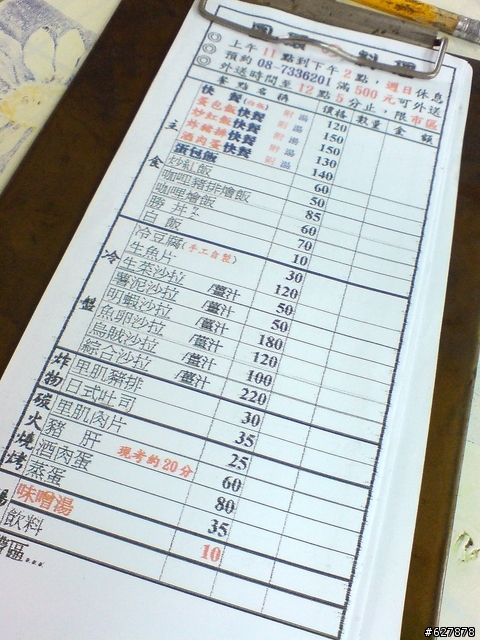 ◎ 上午11點到下午2點，週日休息
◎ 預約 08-7336201 滿500元可外送
◎ 外送時間至12點5分止，限市區
餐點名稱 價格 數量 金額
主食
快餐 附湯 120
蛋包飯快餐 附湯 150
炒紅飯快餐 附湯 150
炸豬排快餐 附湯 130
酒肉蛋快餐 附湯 140
蛋包飯 60
炒紅飯 50
咖哩豬排燴飯 85
咖哩燴飯 60
勝丼 70
白飯 10
冷盤
冷豆腐(手工自製) 30
生魚片 120
生菜沙拉 /薑汁 50
薯泥沙拉 /薑汁 50
明蝦沙拉 /薑汁 180
魚卵沙拉 /薑汁 120
烏賊沙拉 /薑汁 100
綜合沙拉 /薑汁 220
炸物
里肌豬排 30
日式吐司 35
碳火燒烤
里肌肉片 25
豬肝 60
酒肉蛋 現烤約20分 80
蒸蛋 35
湯
味噌湯 10
飲料
#627878